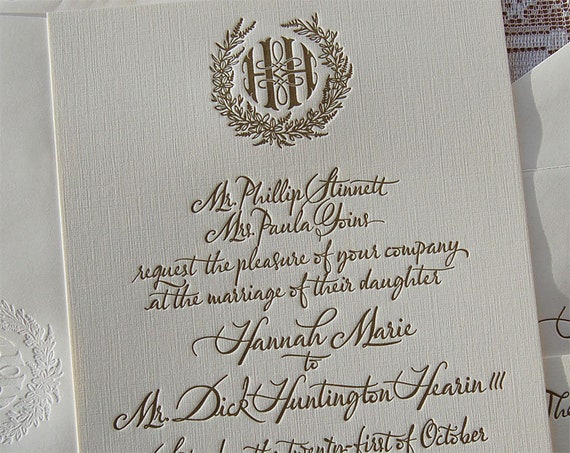 HH
Mr. Phillip Stinnett
Mrs. Paula Goins
request the pleasure of your company
at the marriage of their daughter
Hannah Marie
to
Mr. Dick Huntington Hearin III
the twenty-first of October
The